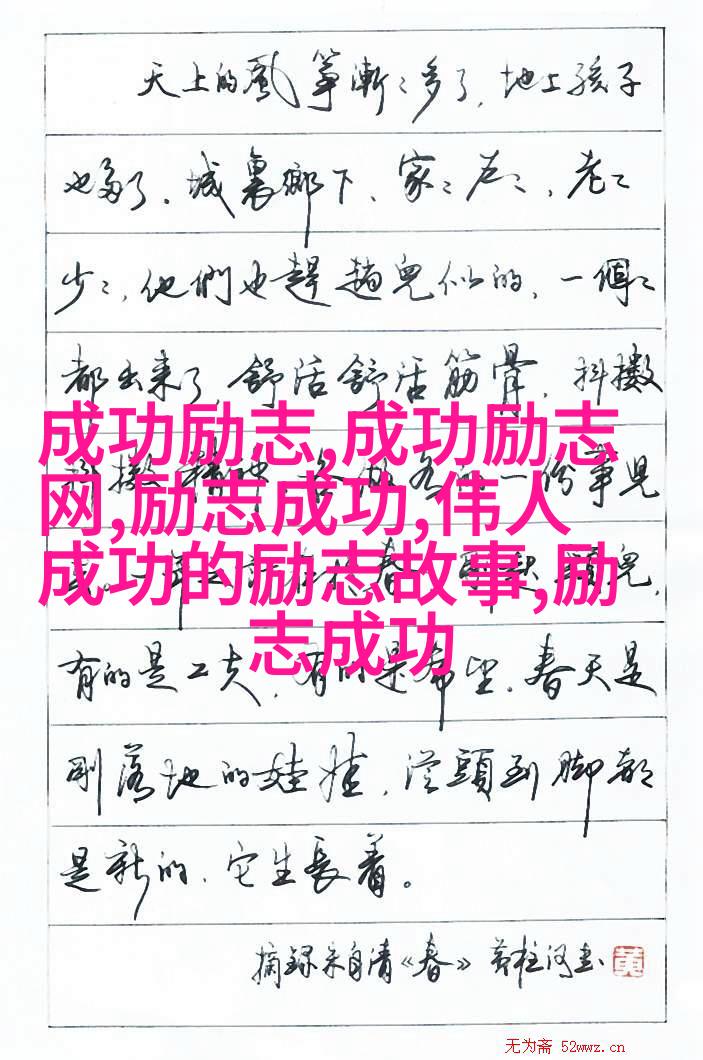 天上的風箏漸々多了，地上孩子
也多了。城裏鄉下、家々户々，老々
少々，他們也趕趟兒似的，一個々
都出来了，舒活舒活筋骨，抖擻
抖擻精神，各做各的一份事兒
成功励志,成功励志
网,励志成功,伟人
成功的励志故事,励
志成功
兒，
有的是工夫，有的是希望。春天是
剛落地的娃娃，從頭到脚都
是新的，它生長着。
摘録朱自清《春》 黄柱河書
黄
无为斋 52wwz.cn